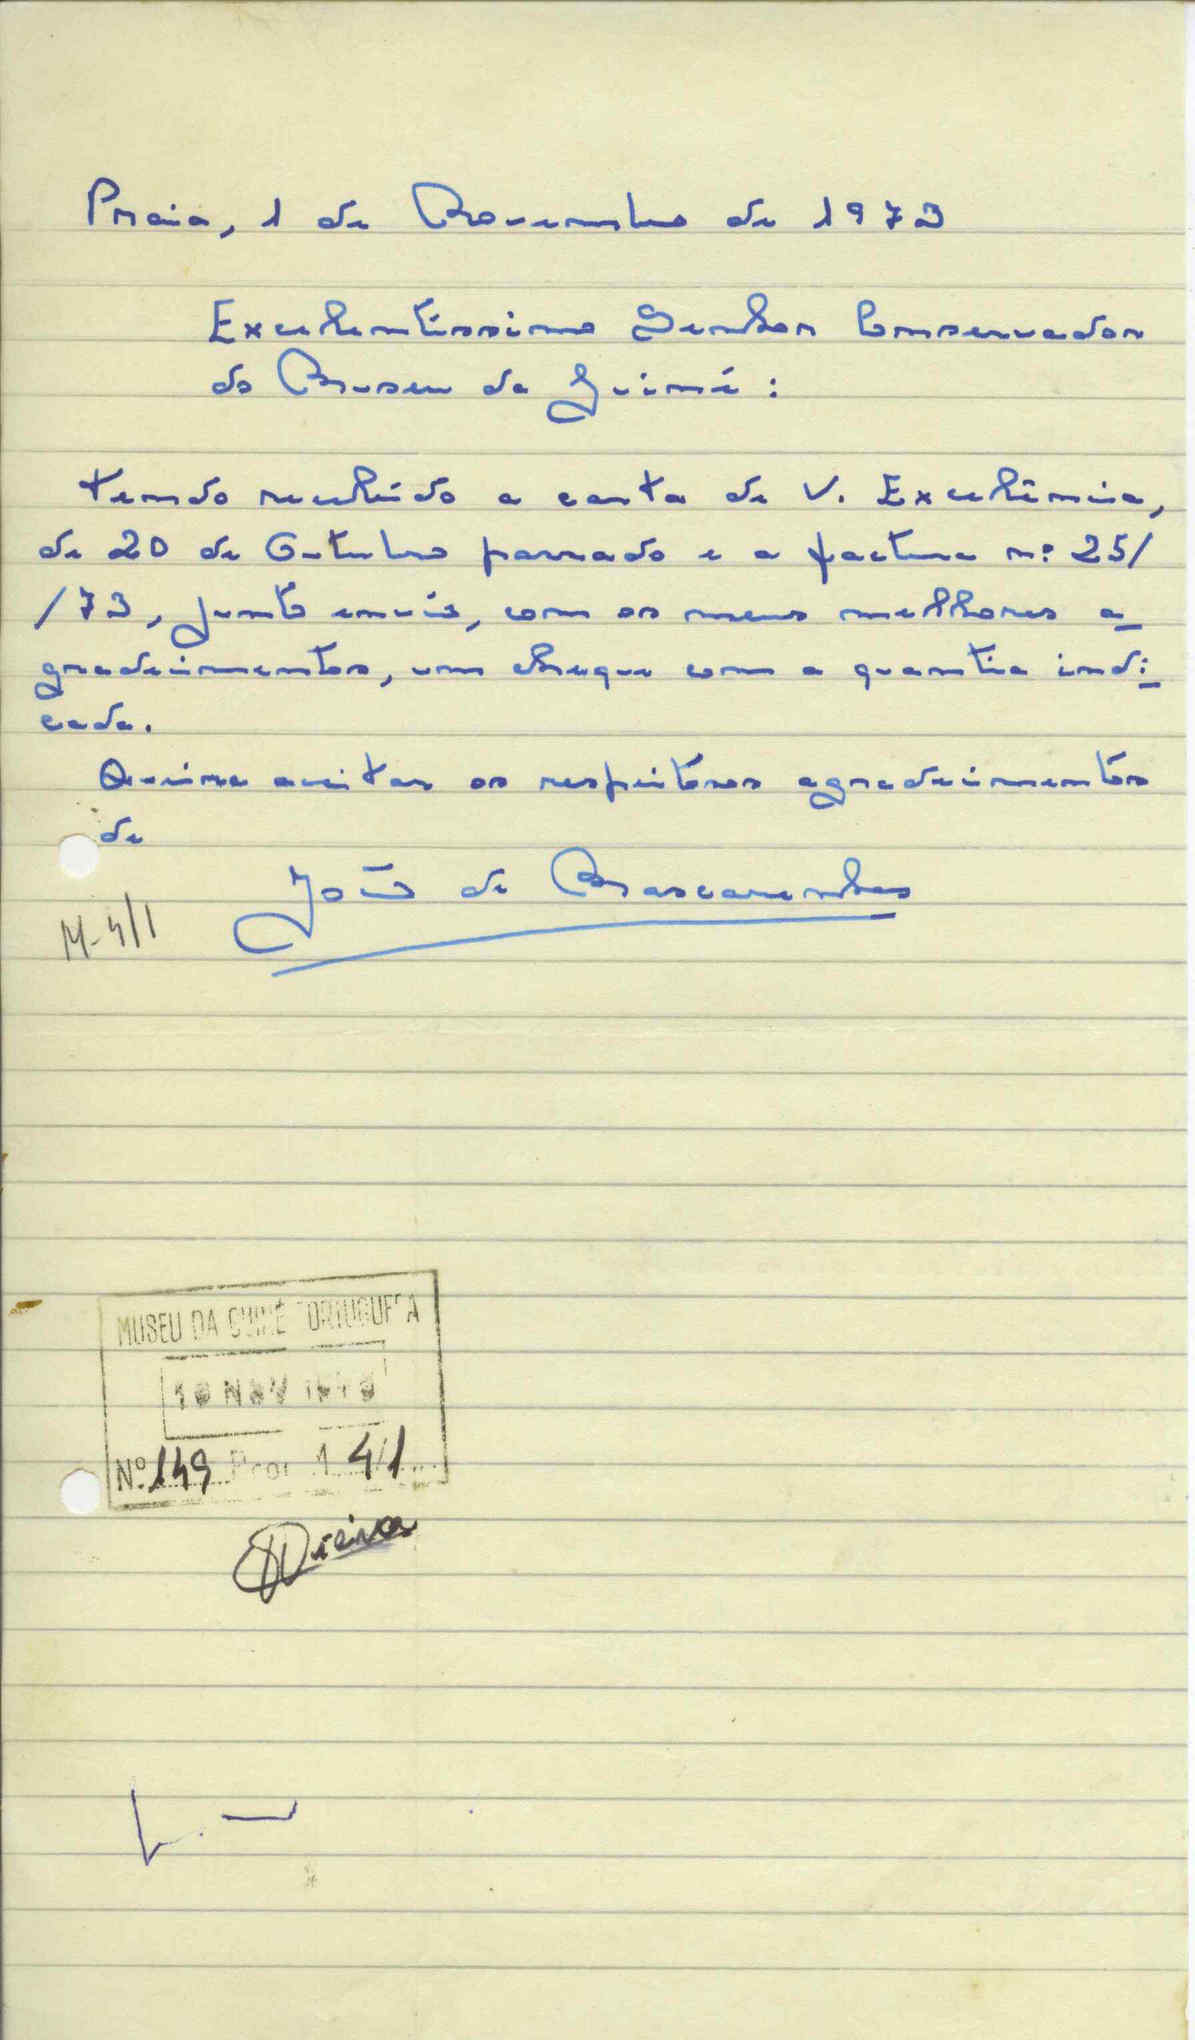 Praia, 1 de Novembro de 1973
Excelentíssimo Senhor Conservador
do Museu da Guiné:
tendo recebido a carta de V. Excelência,
de 20 de Outubro passado e a factura n.º 25/
/73, junto envio, com os meus melhores a-
gradecimentos, um cheque com a quantia indi-
cada.
Queira aceitar os respeitosos agradecimentos
de
João de Mascarenhas
M-4/1
MUSEU DA GUINÉ PORTUGUESA
NOV 1973
Nº 149 Proc. 4/1